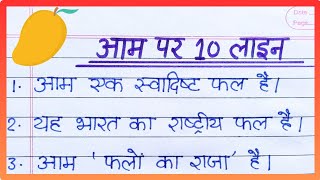 Date
Page
आम पर 10 लाइन
1. आम एक स्वादिष्ट फल है।
2. यह भारत का राष्ट्रीय फल है।
3. आम 'फलों का राजा' है।